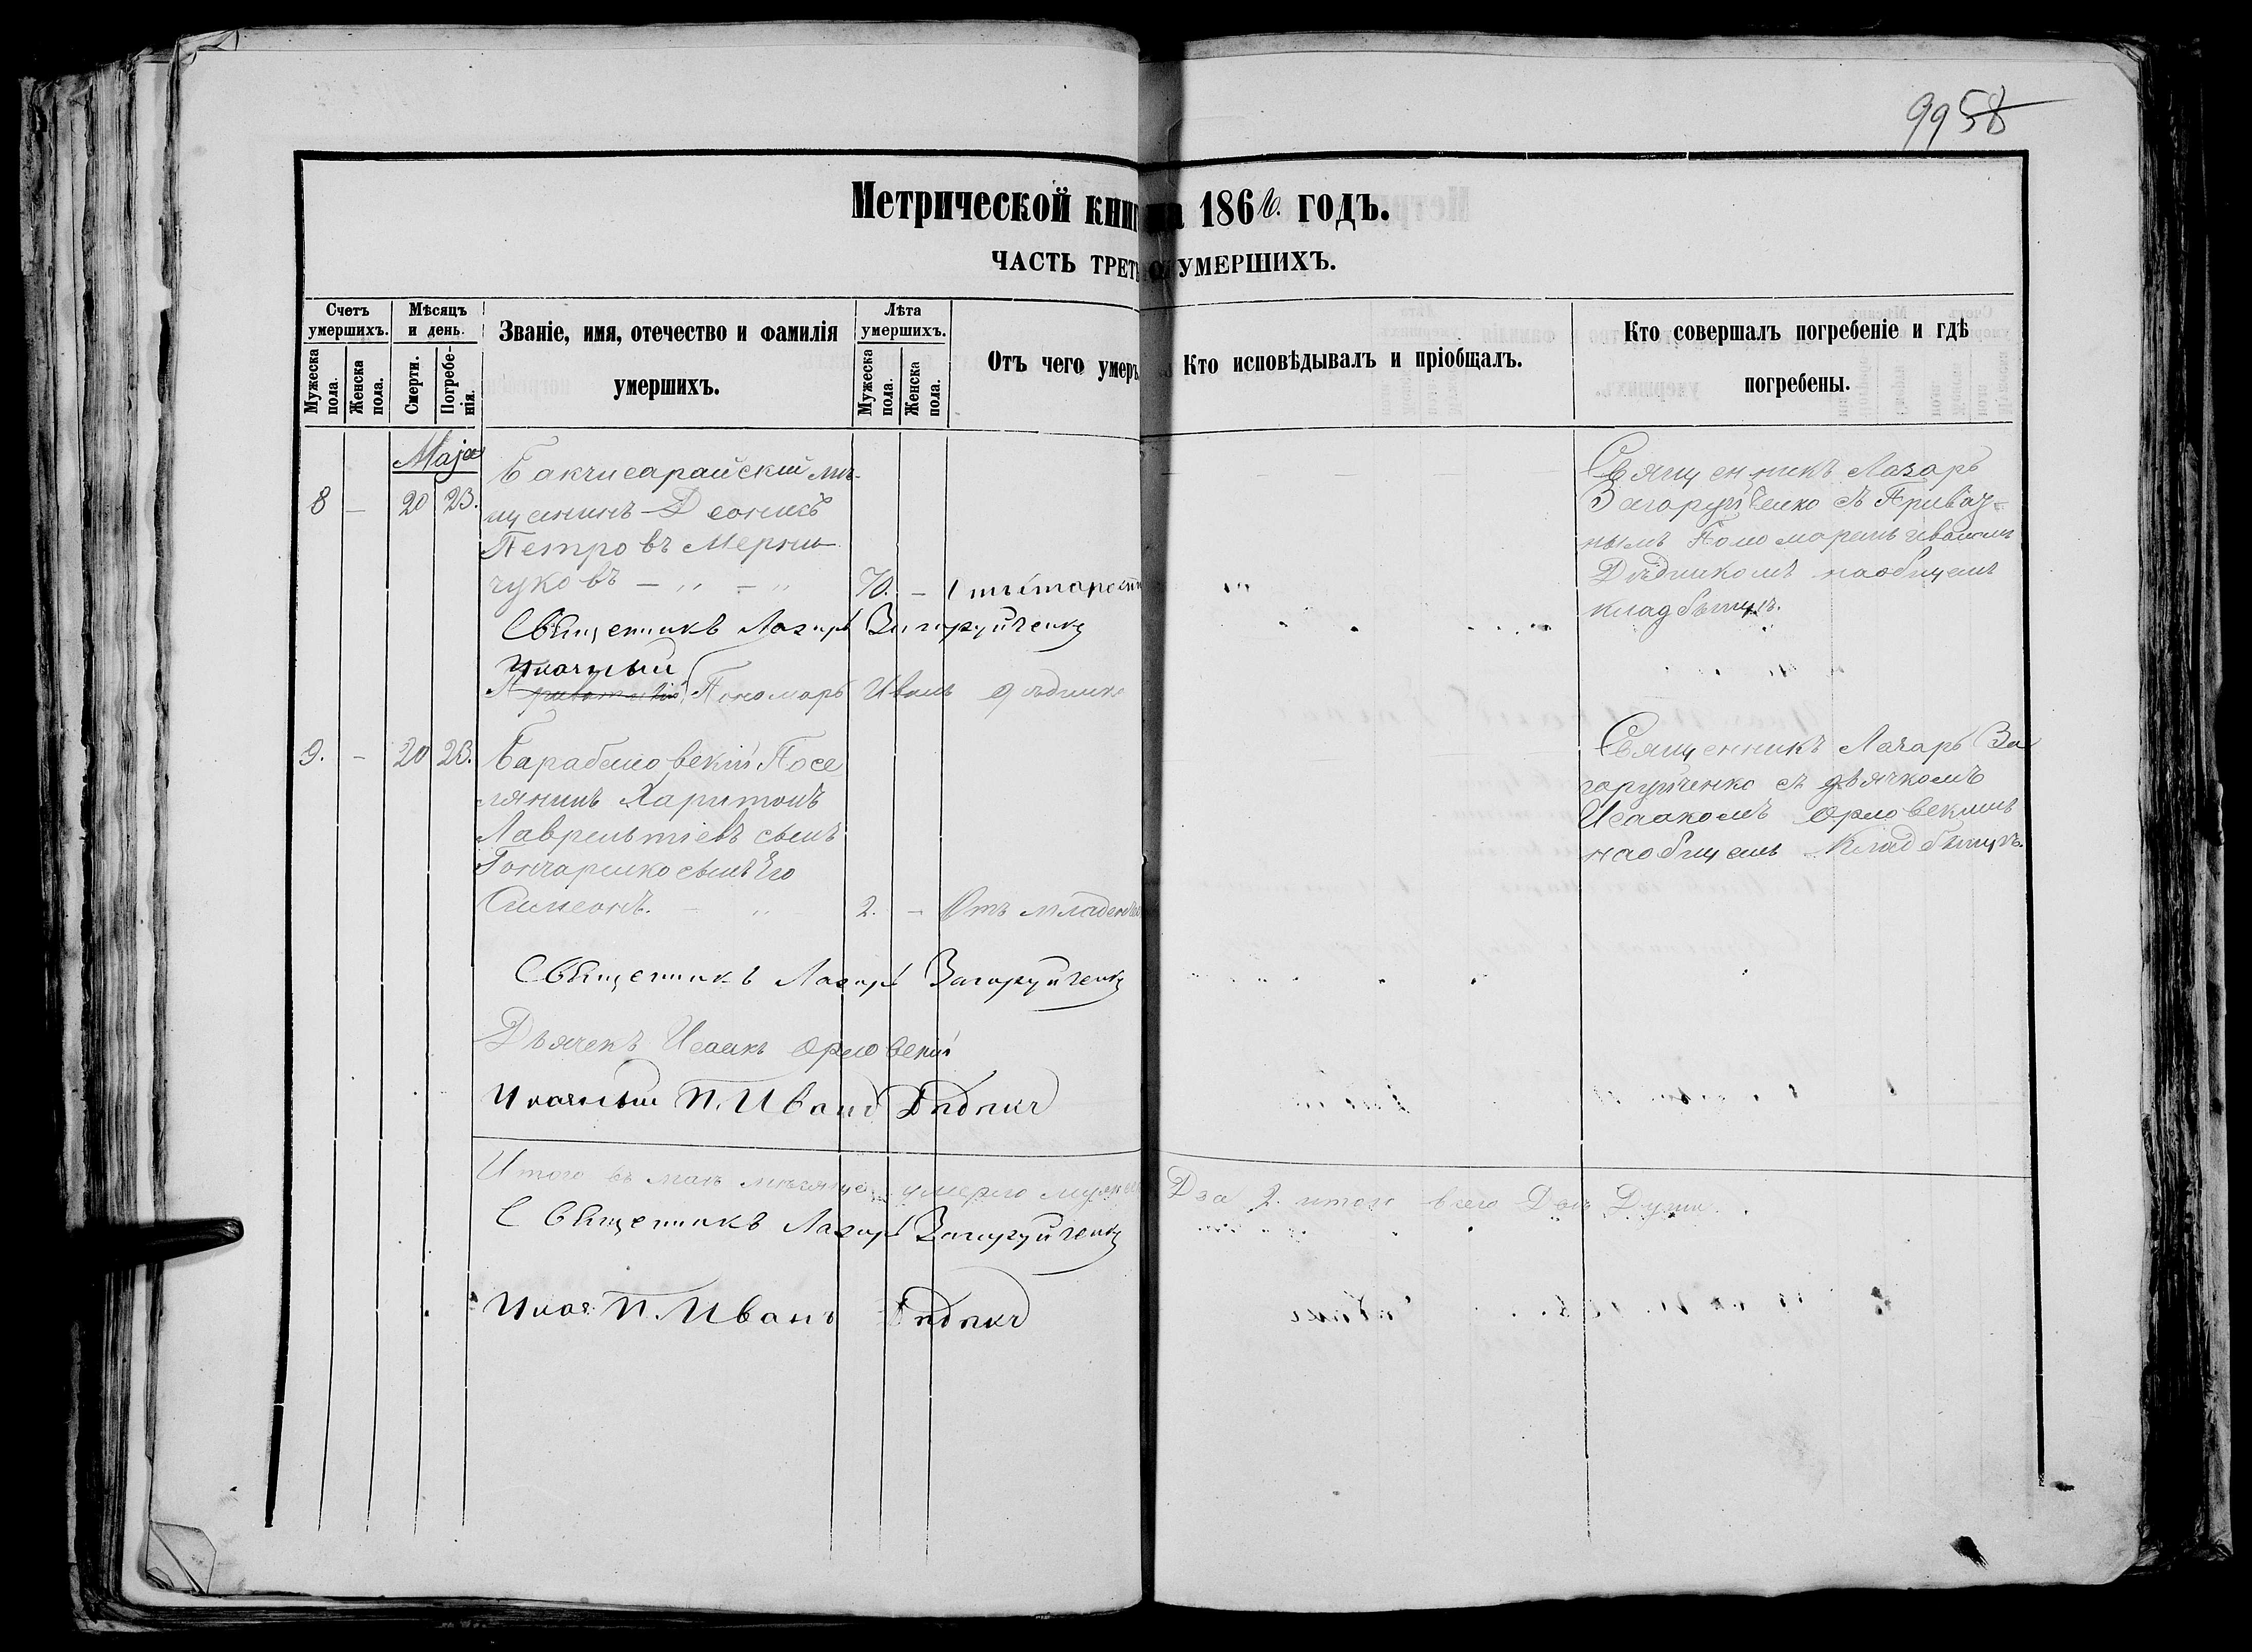 99 58
Метрической книг на 186 годъ.
ЧАСТЬ ТРЕТЬ О УМЕРШИХЪ.
Счетъ умершихъ.
Мужеска пола.
Женска пола.
Мѣсяцъ и день.
Смерти.
Погребенія.
Званіе, имя, отечество и фамилія
умершихъ.
Лѣта умершихъ.
Мужеска пола.
Женска пола.
Отъ чего умеръ
Кто исповѣдывалъ и пріобщалъ.
Кто совершалъ погребеніе и гдѣ
погребены.
Маја
8 — 20 23.
Бакчисарайскій мѣ-
щанинъ
Петровъ
чуковъ — „ — „ 70. —
Священникъ Лазарь
Загоруйченко съ Приват-
нымъ Пономаремъ Иваномъ
Дѣдникомъ на общемъ
кладбищѣ.
Священникъ Лазарь Загоруйченко
Пономарь Иванъ Дѣдникъ
9. — 20 23. Барабановскій Посе
лянинъ Харитонъ
Лаврентіевъ сынъ
Гончаренко сынъ Его
Симеонъ. — „ 2. — Отъ младенч
Священникъ Лазарь За
горуйченко съ дьячкомъ
Исаакомъ Орловскимъ
на общемъ Кладбищѣ.
Священникъ Лазарь Загоруйченко
Дьячекъ Исаакъ Орловскій
П. Иванъ Дѣдникъ
Итого въ маѣ мѣсяцѣ умерло муж Два 2. итого всего Двѣ Души.
Священникъ Лазарь Загоруйченко
П. Иванъ Дѣдникъ